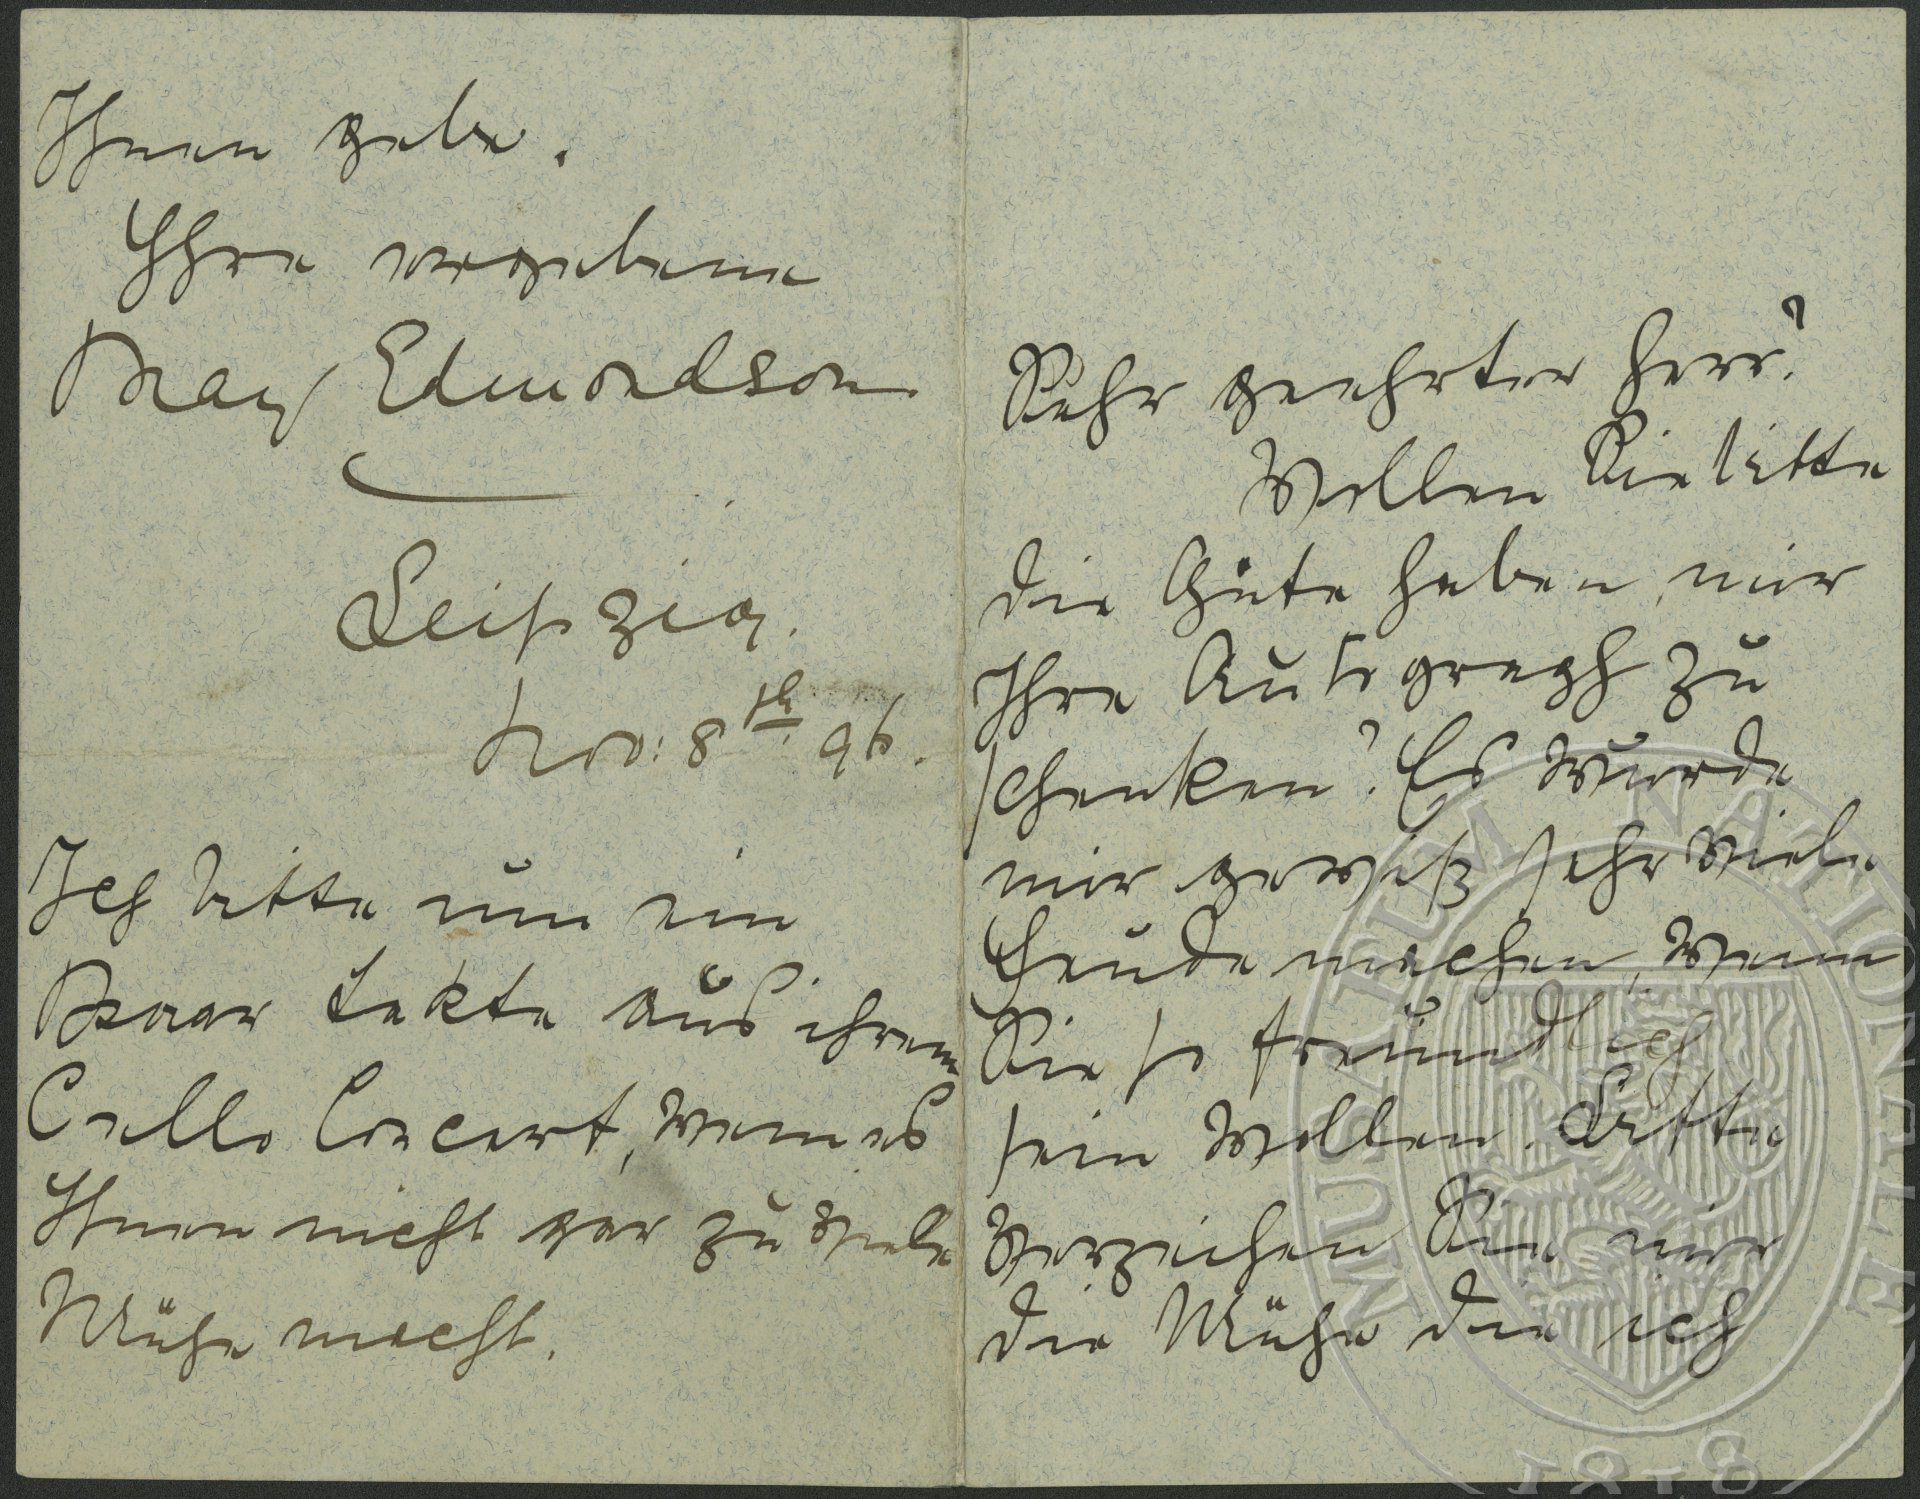 Sehr geehrter Herr!
Wollen Sie bitte
die Güte haben, mir
Ihre Autograph zu
schenken? Es wurde
mir gewiß sehr viele
Freude machen, wenn
Sie so freundlich
sein wollen. Bitte
verzeihen Sie mir
die Mühe die ich
Ihnen gebe.
Ihre ergebene
May Edmondson.
Leipzig.
Nov: 8th 96.
Ich bitte um ein
Paar Takte aus ihrem
Cello Concert, wenn es
Ihnen nicht gar zu viele
Mühe macht.
MUSAEUM NATIONALE
1818